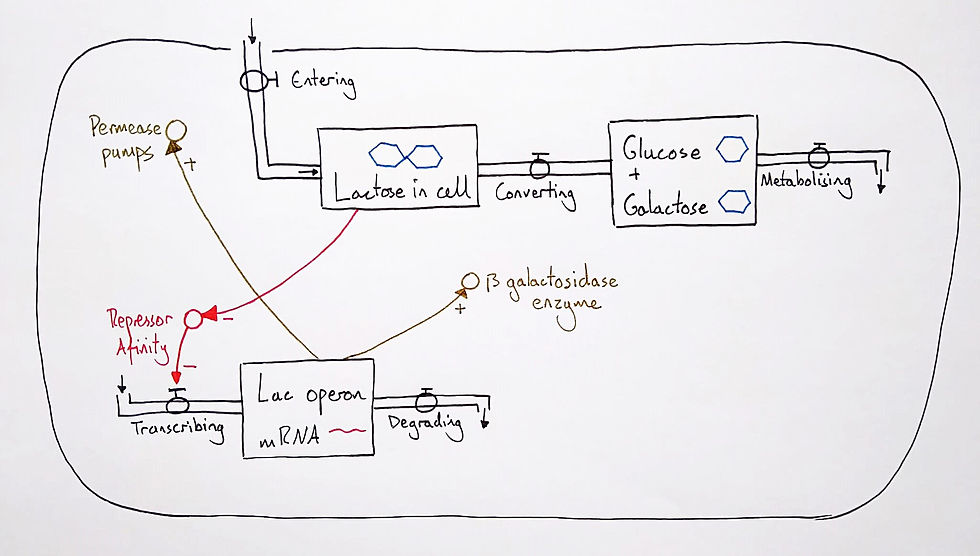 Entering
Permease
pumps
+
Lactose in cell
Converting
Glucose
+
Galactose
Metabolising
β galactosidase
enzyme
+
Repressor
Afinity
-
-
Transcribing
Lac operon
mRNA
Degrading